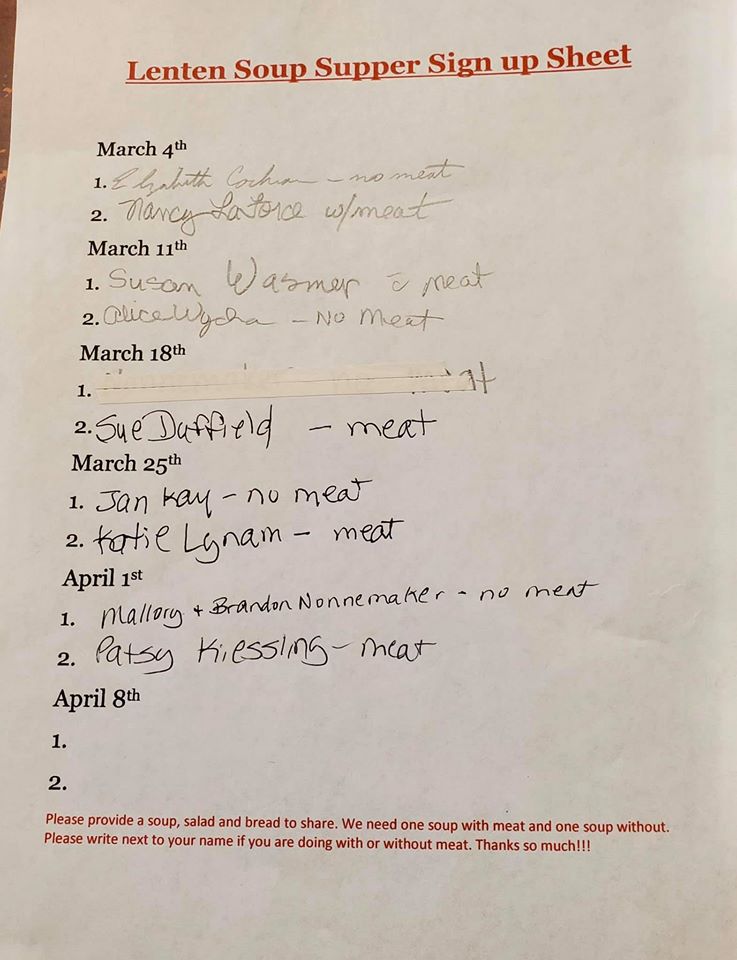 Lenten Soup Supper Sign up Sheet
March 4th
1. Elizabeth Cochran - no meat
2. Nancy LaForce w/meat
March 11th
1. Susan Wasmer c̄ meat
2. Alice Wycha - No Meat
March 18th
1.
2. Sue Duffield - meat
March 25th
1. Jan Kay - no meat
2. Katie Lynam - meat
April 1st
1. Mallory + Brandon Nonnemaker - no meat
2. Patsy Kiessling - meat
April 8th
1.
2.
Please provide a soup, salad and bread to share. We need one soup with meat and one soup without.
Please write next to your name if you are doing with or without meat. Thanks so much!!!